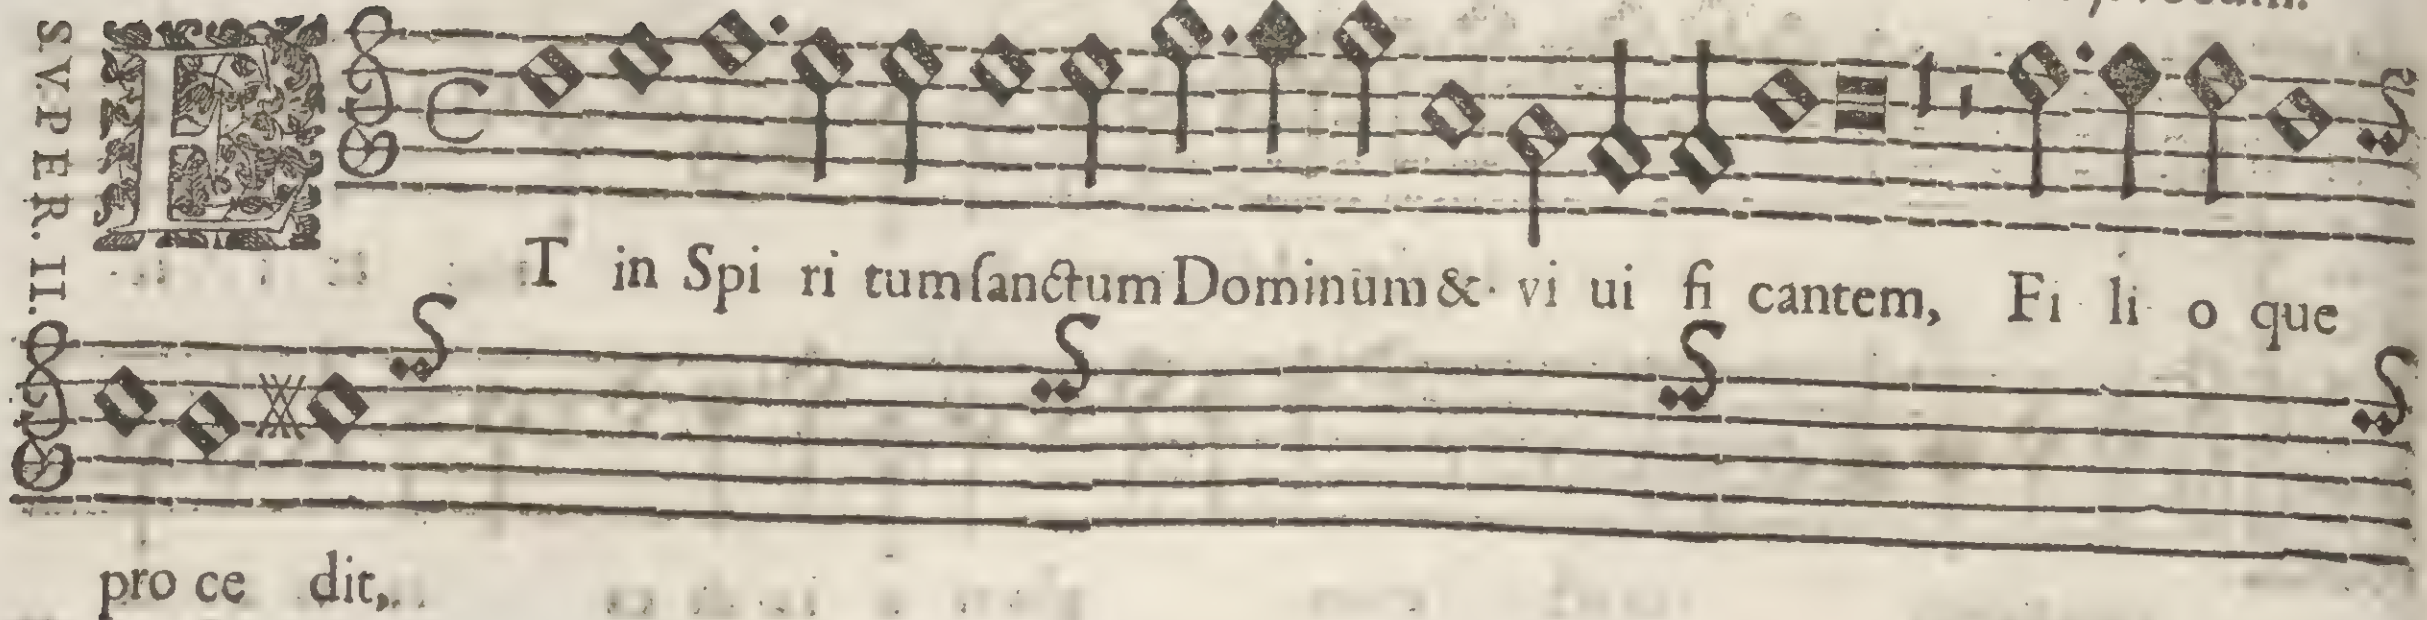 SVPER. II.
ET in Spi ri tum ſanctum Dominum & vi ui fi cantem, Fi li o que
pro ce dit,